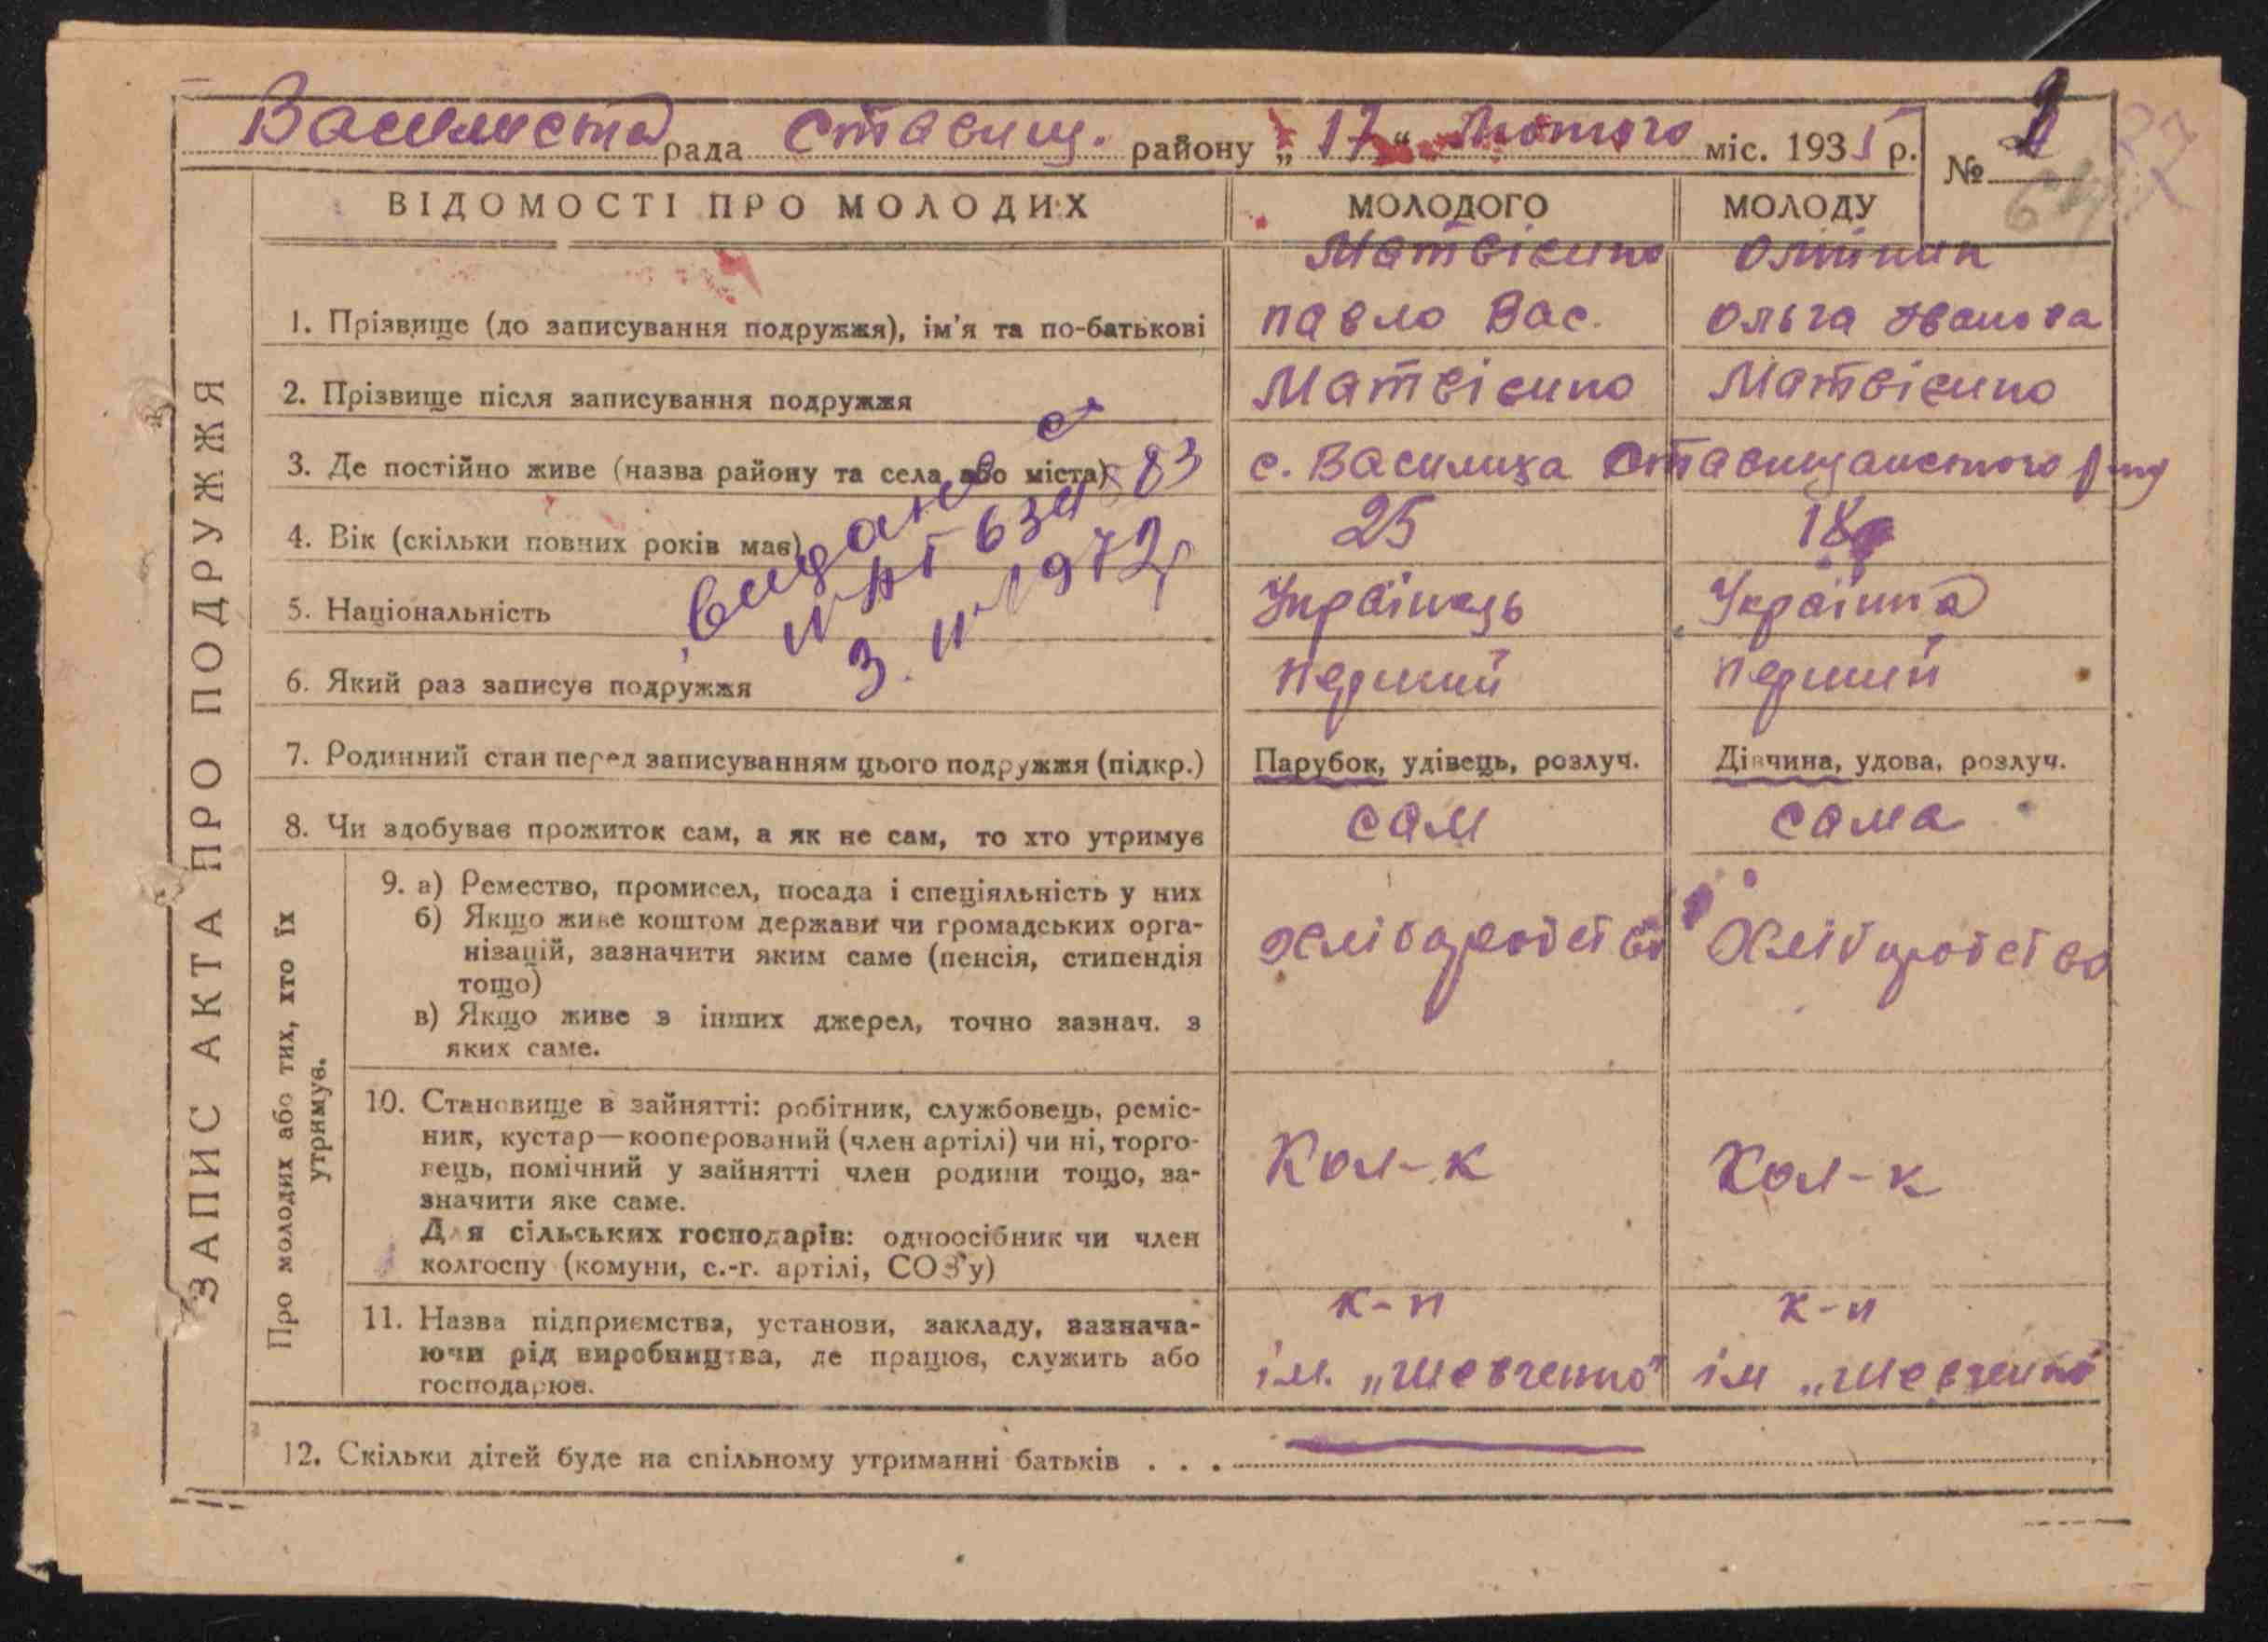 рада Ставищ. району „17“ Лютого міс. 1935 р. №
ВІДОМОСТІ ПРО МОЛОДИХ МОЛОДОГО МОЛОДУ
ЗАПИС АКТА ПРО ПОДРУЖЖЯ
Матвієнко Олійник
1. Прізвище (до записування подружжя), ім'я та по-батькові Павло Вас. Ольга Іванова
2. Прізвище після записування подружжя Матвієнко Матвієнко
3. Де постійно живе (назва району та села або міста) с. Василиха Ставищанского
4. Вік (скільки повних років має) 25 18
5. Національність Українець Українка
6. Який раз записує подружжя перший перший
видано
634583
1972р
7. Родинний стан перед записуванням цього подружжя (підкр.) Парубок, удівець, розлуч. Дівчина, удова, розлуч.
8. Чи здобуває прожиток сам, а як не сам, то хто утримує сам сама
Про молодих або тих, хто їх
утримує.
9. а) Ремество, промисел, посада і спеціяльність у них
б) Якщо живе коштом держави чи громадських орга-
нізацій, зазначити яким саме (пенсія, стипендія
тощо)
хліборобство хліборобство
в) Якщо живе з інших джерел, точно зазнач. з
яких саме.
10. Становище в зайнятті: робітник, службовець, реміс-
ник, кустар—кооперований (член артілі) чи ні, торго-
вець, помічний у зайнятті член родини тощо, за-
значити яке саме.
Для сільських господарів: одноосібник чи член
колгоспу (комуни, с.-г. артілі, СОЗ'у)
Кол-к Кол-к
11. Назва підприємства, установи, закладу, зазнача-
ючи рід виробництва, де працює, служить або
господарює.
к-п к-п
ім. „Шевченко“ ім „Шевченко“
12. Скільки дітей буде на спільному утриманні батьків . . .